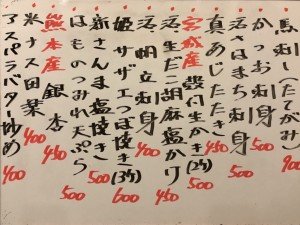 ・馬刺し(たてがみ) 900
・かつお刺身 500
・活 刺身 500
・真あじたたき 450
・宮城産 殻付生かき(2ケ) 500
・活生だこ胡麻塩かけ 450
・活 刺身 400
・姫サザエつぼ焼き(3ケ) 600
・新さんま塩焼き 500
・はものつみれ天ぷら 500
・熊本産 銀杏 450
・米ナス田楽 400
・アスパラバター炒め 400